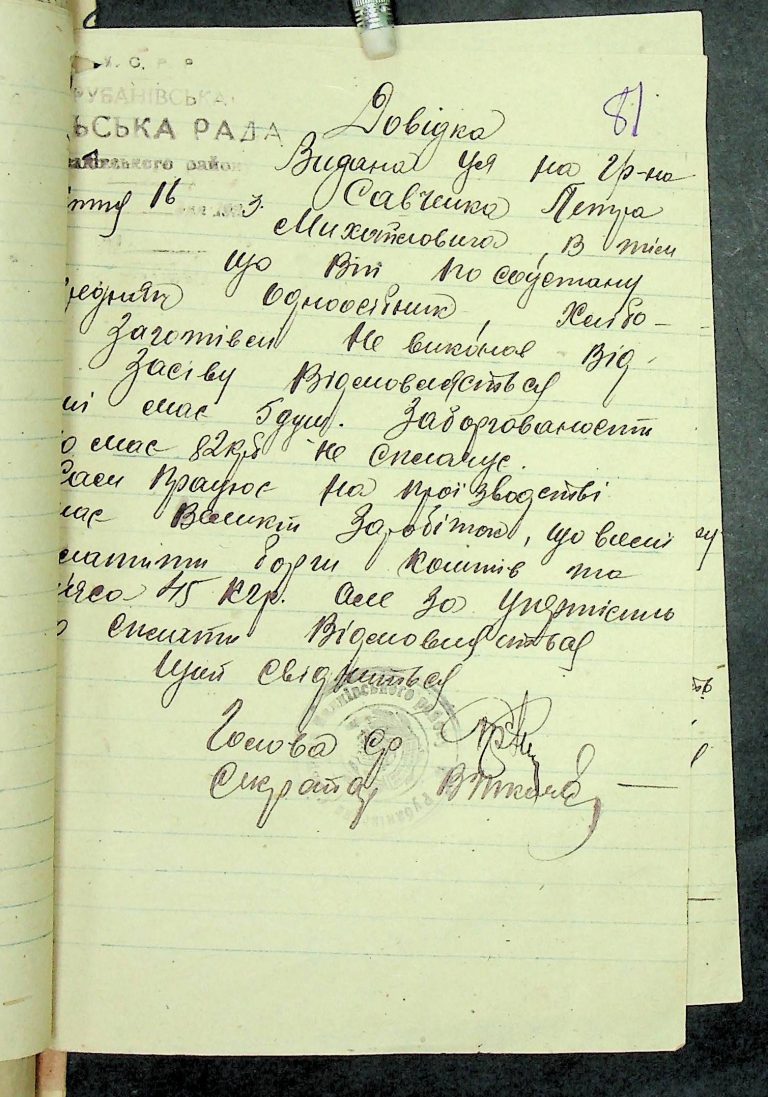 У. С. Р. Р.
РУБАНІВСЬКА
ЬСЬКА РАДА
81
Довідка
Видана ця на гр-на
16
Савченка Петра
Михайловича, в тім
що Він по соцстану
Середняк Одноосібник, Хлібо-
Заготівлі Не виконав Від
Засіву Відмовляється
має 5 душ. Заборгованости
має 82 крб не сплачує.
Сам Працює на проізводстві
має Великий Заробіток, що
сплатити борги коштів та
мясо 45 кгр. але за упертістю
сплати Відмовляється
Цим свідчиться
Голова с/р
Секретар